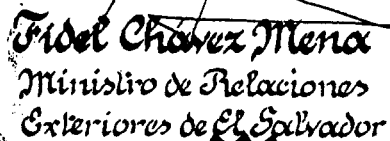 Fidel Chávez Mena
Ministro de Relaciones
Exteriores de El Salvador